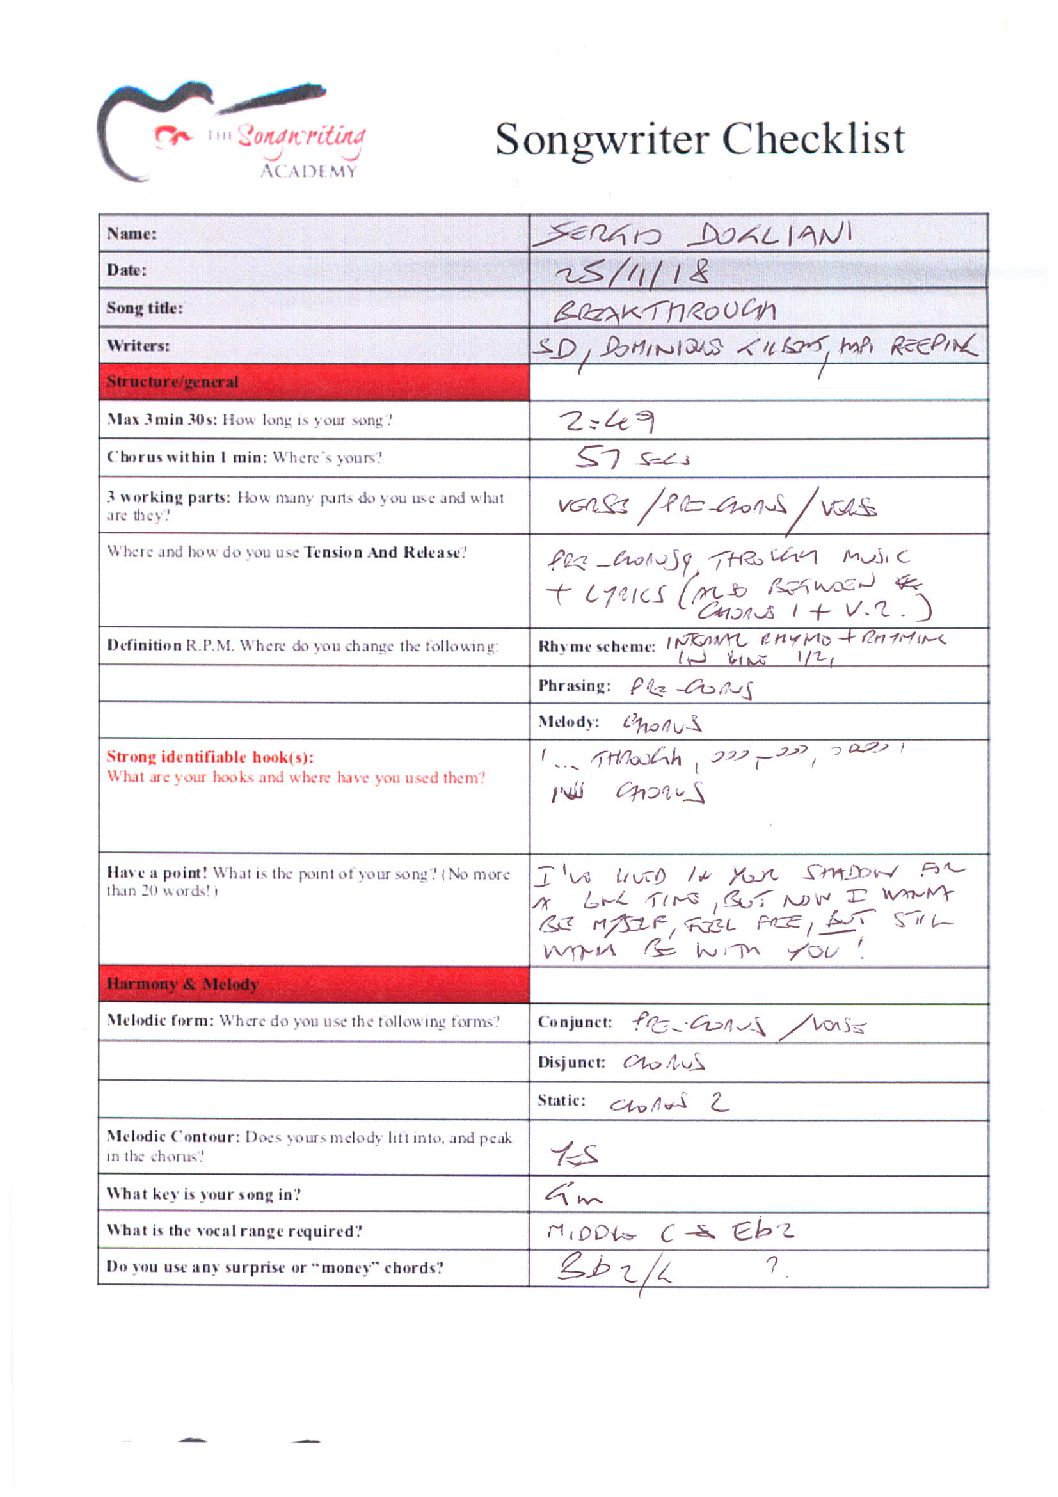 THE Songwriting
ACADEMY
Songwriter Checklist
Name: SERGIO DOGLIANI
Date: 25/11/18
Song title: BREAKTHROUGH
Writers: SD, DOMINIQUE
Structure/general
Max 3min 30s: How long is your song? 2:49
Chorus within 1 min: Where's yours? 57 secs
3 working parts: How many parts do you use and what
are they? VERSE / PRE-CHORUS / VERSE
Where and how do you use Tension And Release? PRE-CHORUS, THROUGH MUSIC
+ LYRICS (ALSO BETWEEN
CHORUS 1 + V.2.)
Definition R.P.M. Where do you change the following: Rhyme scheme: INTERNAL RHYMO + RHYMING
IN LINE 1/2,
Phrasing: PRE-CHORUS
Melody: CHORUS
Strong identifiable hook(s): '... THROUGH,
What are your hooks and where have you used them? IN CHORUS
Have a point! What is the point of your song? (No more I'VE LIVED IN YOUR SHADOW FOR
than 20 words!) A LONG TIME, BUT NOW I WANNA
BE MYSELF, FEEL FREE, BUT STILL
WANNA BE WITH YOU!
Harmony & Melody
Melodic form: Where do you use the following forms? Conjunct: PRE-CHORUS / VERSE
Disjunct: CHORUS
Static: CHORUS 2
Melodic Contour: Does yours melody lift into, and peak
in the chorus? YES
What key is your song in? Gm
What is the vocal range required? MIDDLE C Eb2
Do you use any surprise or "money" chords? Bb2/ ?